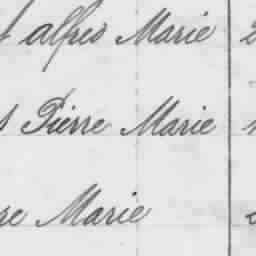 alfred Marie
Pierre Marie
re Marie